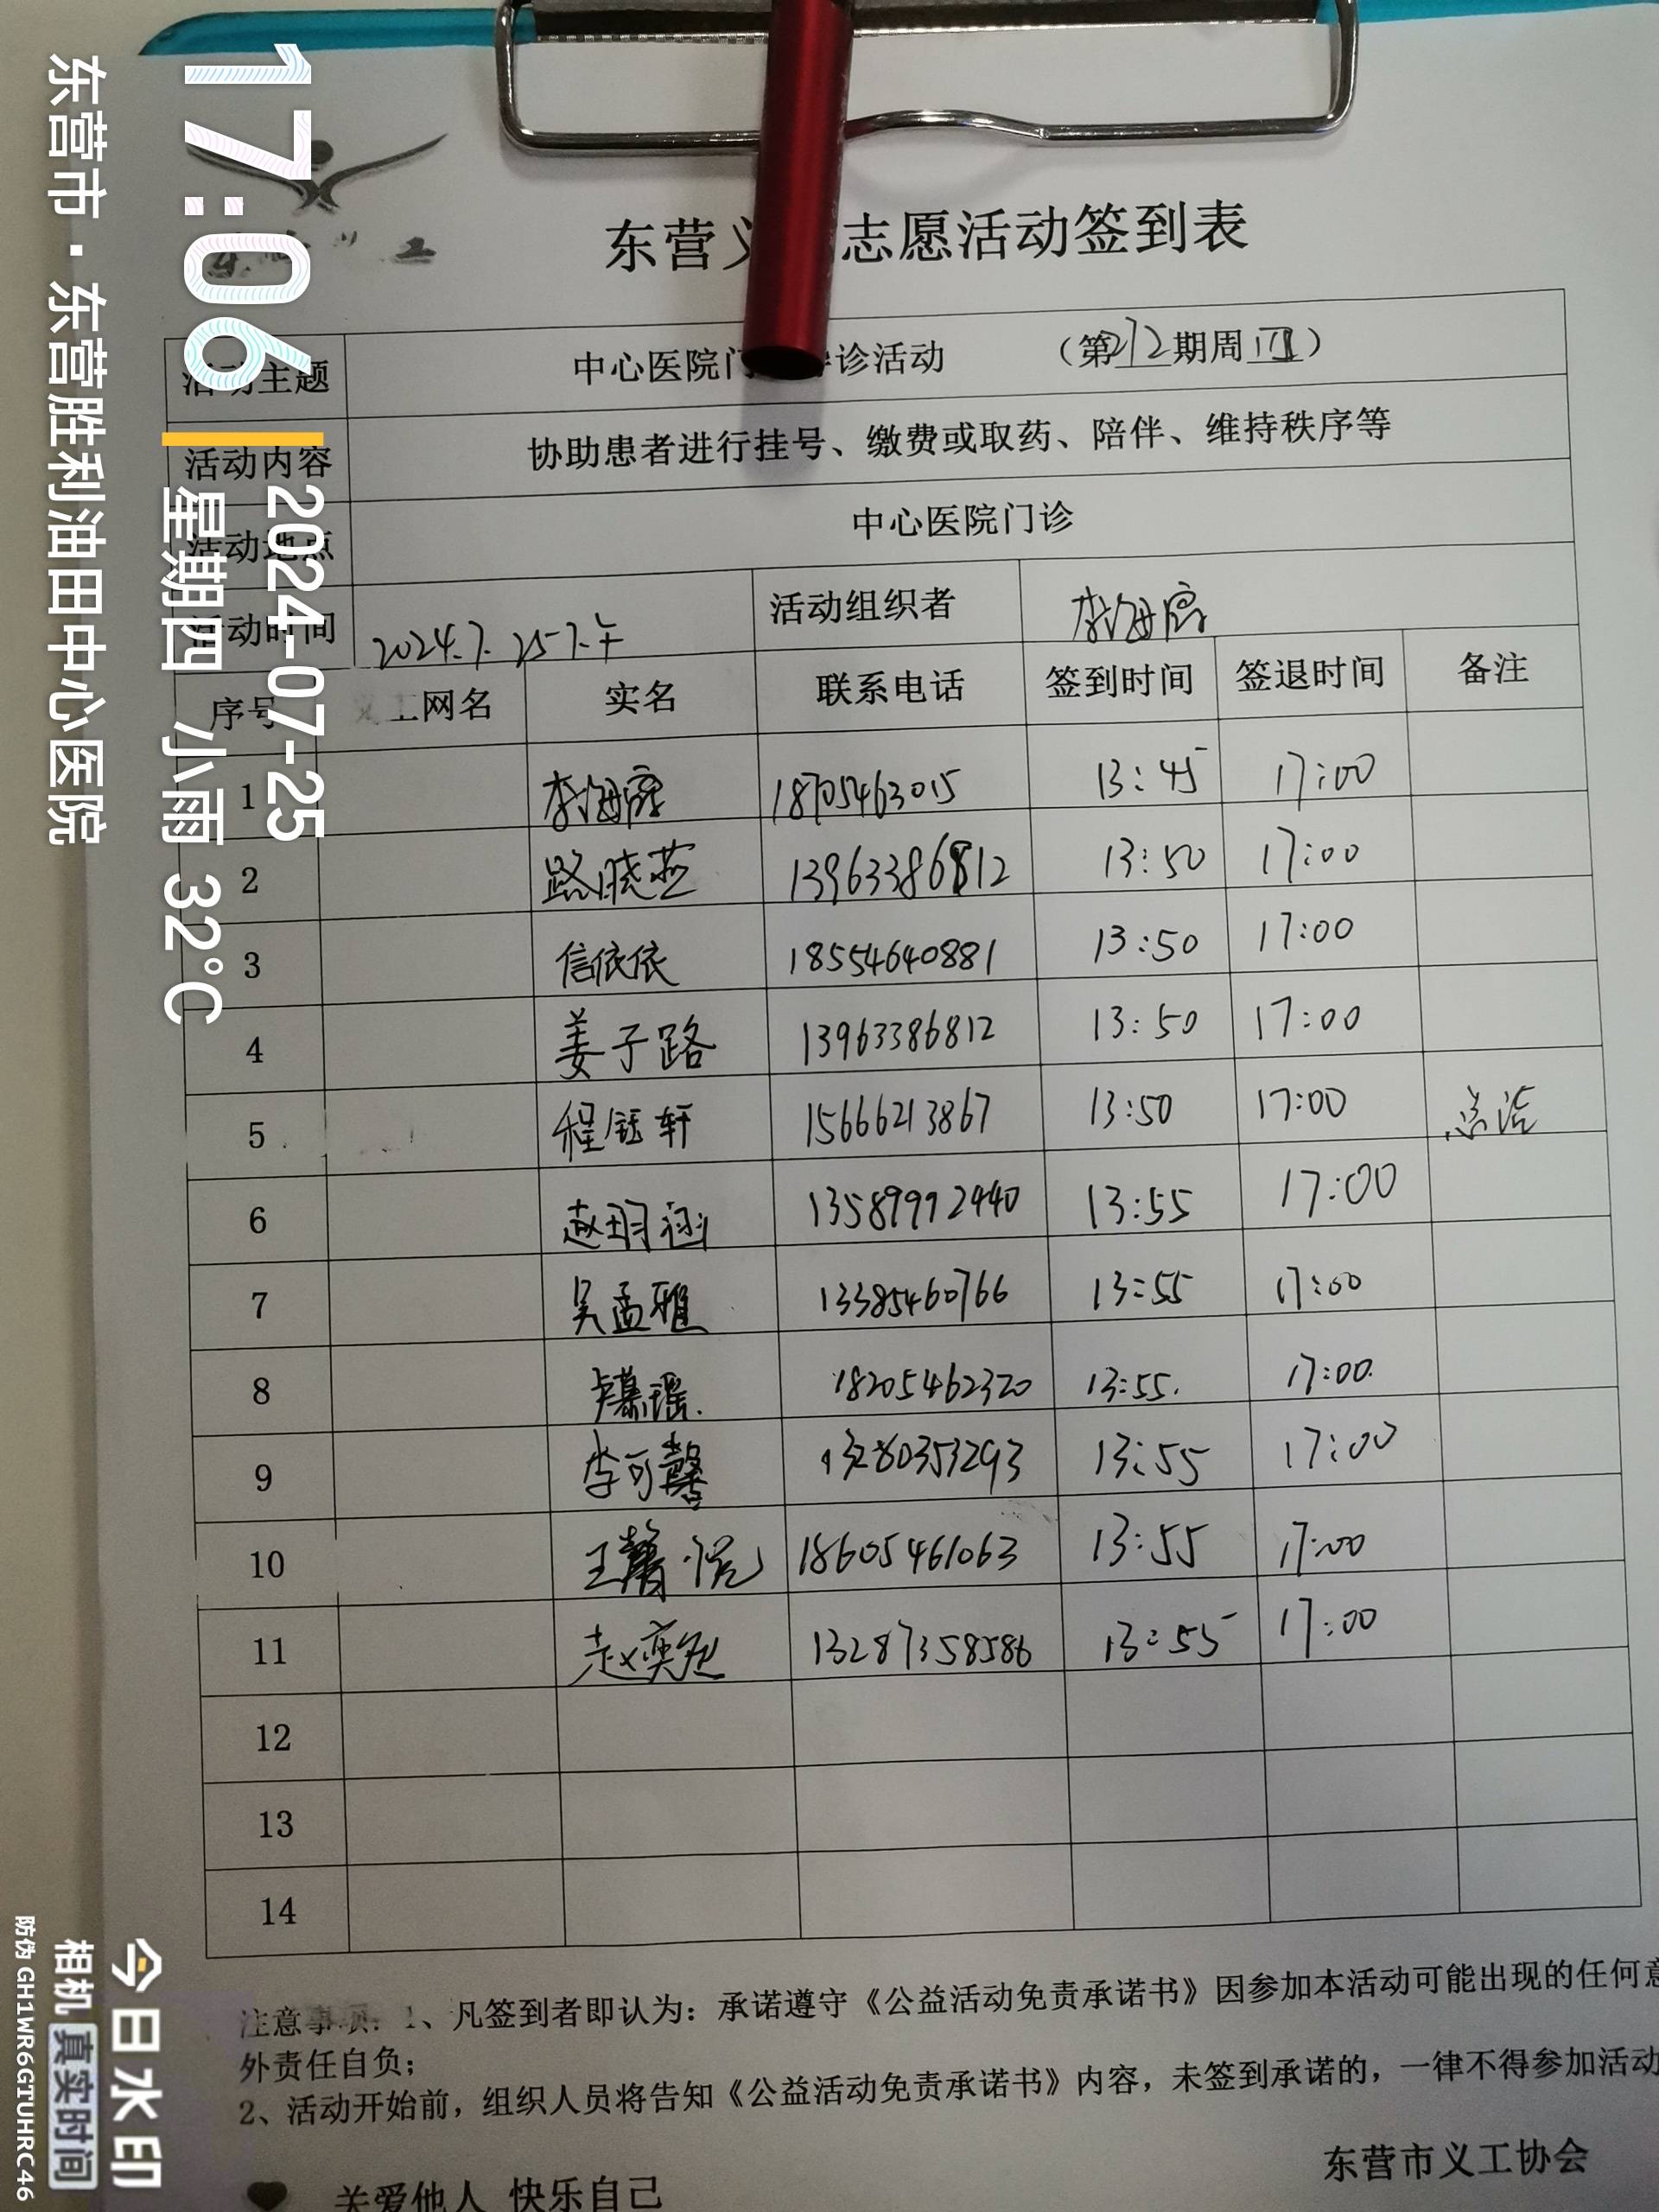 17:06
2024-07-25
星期四 小雨 32°C
东营市·东营胜利油田中心医院
东营义 志愿活动签到表
活动主题 中心医院门 诊活动 （第212期周四）
活动内容 协助患者进行挂号、缴费或取药、陪伴、维持秩序等
活动地点 中心医院门诊
活动时间 2024.7.25下午 活动组织者 李海
序号 义工网名 实名 联系电话 签到时间 签退时间 备注
1 李海 18705463015 13:45 17:00
2 路晓燕 13963386812 13:50 17:00
3 信依依 18554640881 13:50 17:00
4 姜子路 13963386812 13:50 17:00
5 程钰轩 15666213867 13:50 17:00 总结
6 赵玥涵 13589992440 13:55 17:00
7 吴孟雅 13385460766 13:55 17:00
8 慕瑶 18205462320 13:55. 17:00.
9 李可馨 13280353293 13:55 17:00
10 王馨悦 18605461063 13:55 17:00
11 赵奕 13287358586 13:55 17:00
12
13
14
注意事项：1、凡签到者即认为：承诺遵守《公益活动免责承诺书》因参加本活动可能出现的任何意
外责任自负；
2、活动开始前，组织人员将告知《公益活动免责承诺书》内容，未签到承诺的，一律不得参加活动
东营市义工协会
关爱他人 快乐自己
今日水印
相机 真实时间
防伪 GH1WR6GTUHRC46